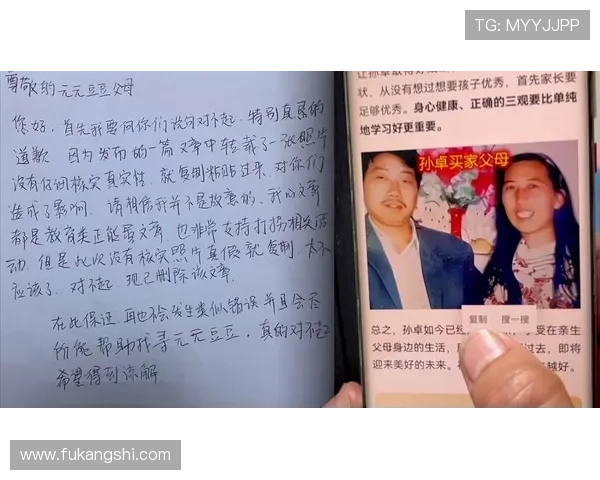 TG: MYYJJPP
尊敬的元元豆豆父母
您好,首先我要向你们说句对不起,特别真恳的
道歉,因为发布的一篇文章中转载了一张照片
没有仔细核实真实性,就复制粘贴过来,对你们
造成了影响,请相信我并不是故意的,我的文章
都是教育类正能量文章,也非常支持打拐相关活
动,但是此次没有核实照片真假就复制,太不
应该了,对不起,现已删除该文章.
在此保证,再也不会发生类似错误并且会尽
所能帮助找寻元元豆豆,真的对不起
希望得到谅解
状,从没有想过想要孩子优秀,首先家长要
足够优秀。身心健康、正确的三观要比单纯
地学习好更重要。
孙卓买家父母
复制 搜一搜
总之,孙卓如今已经 受在亲生
父母身边的生活, 过去,即将
迎来美好的未来。 越好。
www.fukangshi.com